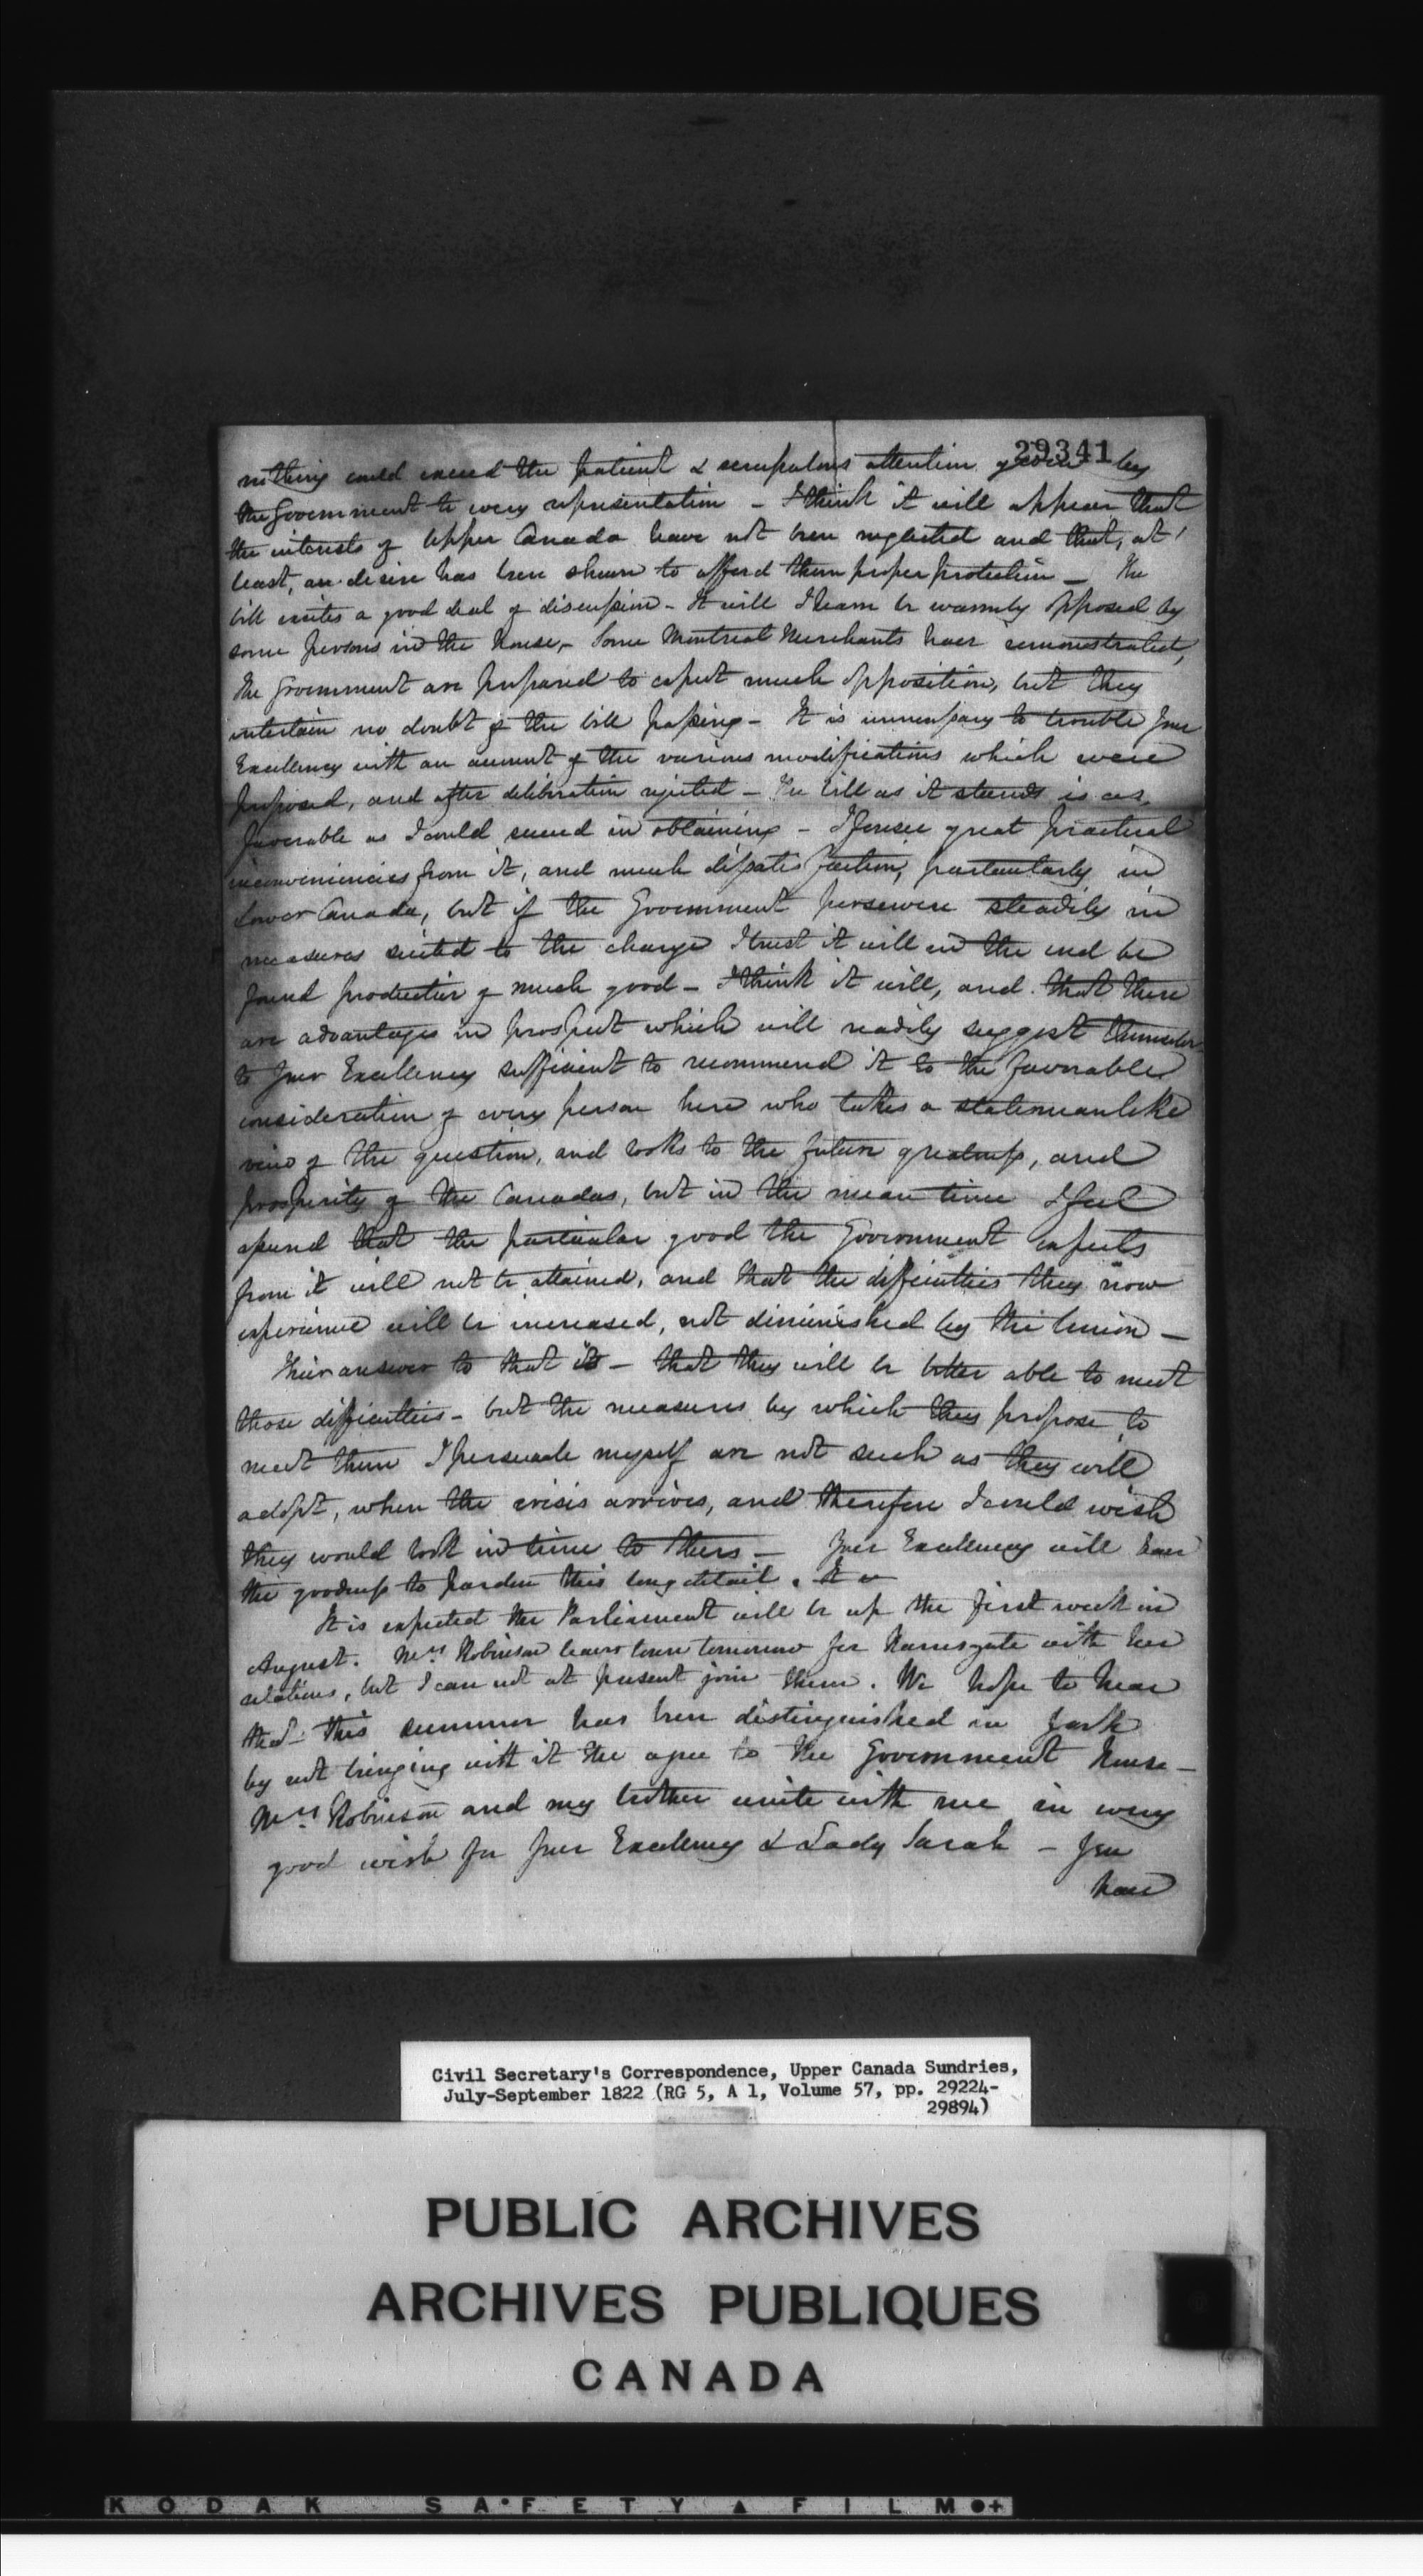 29341
nothing could exceed the patient & scrupulous attention given by
the Government to every representation – I think it will appear that
the interests of Upper Canada have not been neglected and that, at
least, a desire has been shewn to afford them proper protection – The
bill excites a good deal of discussion – It will I learn be warmly opposed by
some persons in the House, – Some Montreal Merchants have remonstrated,
The Government are prepared to expect much opposition, but they
entertain no doubt of the bill passing – It is unnecessary to trouble Your
Excellency with an account of the various modifications which were
proposed, and after deliberation rejected – The bill as it stands is as
favorable as I could succeed in obtaining – I foresee great practical
inconveniencies from it, and much dissatisfaction, particularly in
Lower Canada, but if the Government persevere steadily in
measures suited to the change I trust it will in the end be
found productive of much good – I think it will, and that there
are advantages in prospect which will readily suggest themselves
to Your Excellency sufficient to recommend it to the favorable
consideration of every person here who takes a statesmanlike
view of the question, and looks to the future greatness, and
prosperity of the Canadas, but in the mean time I feel
assured that the particular good the Government expects
from it will not be attained, and that the difficulties they now
experience will be increased, not diminished by the Union –
Their answer to that is – that they will be better able to meet
those difficulties – but the measures by which they propose to
meet them I persuade myself are not such as they will
adopt, when the crisis arrives, and therefore I could wish
they would look in time to others – Your Excellency will have
the goodness to pardon this long detail.
It is expected the Parliament will be up the first week in
August. Mrs Robinson leaves town tomorrow for Ramsgate with her
relations, but I can not at present join them. We hope to hear
that this summer has been distinguished in York
by not bringing with it the ague to the Government House –
Mrs Robinson and my brother unite with me in every
good wish for Your Excellency & Lady Sarah – You
have
Civil Secretary's Correspondence, Upper Canada Sundries,
July-September 1822 (RG 5, A 1, Volume 57, pp. 29224-
29894)
PUBLIC ARCHIVES
ARCHIVES PUBLIQUES
CANADA
KODAK SAFETY FILM